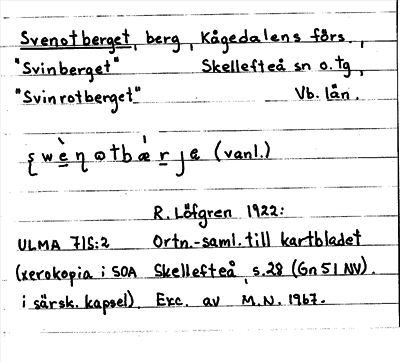 Svenotberget, berg, Kågedalens förs.,
"Svinberget" Skellefteå sn o. tg,
"Svinrotberget" Vb. län.
(vanl.)
R. Löfgren 1922:
ULMA 715:2 Ortn.-saml. till kartbladet
(xerokopia i SOA Skellefteå, s. 28 (Gn 51 NV).
i särsk. kapsel). Exc. av M.N. 1967.